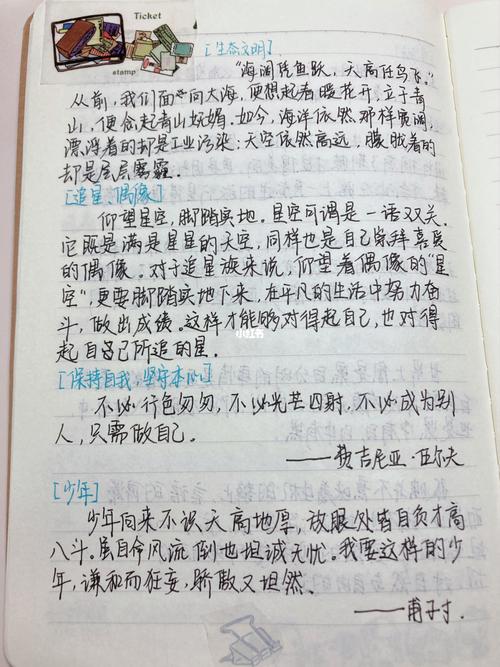 Ticket
stamp
[生态文明]
"海阔凭鱼跃，天高任鸟飞。"
从前，我们面向大海，便想起春暖花开，立于青
山，便念起青山妩媚。如今，海洋依然那样宽阔，
漂浮着的却是工业污染；天空依然高远，朦胧着的
却是层层雾霾。
[追星、偶像]
仰望星空，脚踏实地。星空可谓是一语双关。
它既是满是星星的天空，同样也是自己崇拜喜爱
的偶像。对于追星族来说，仰望着偶像的"星
空"，更要脚踏实地下来，在平凡的生活中努力奋
斗，做出成绩。这样才能够对得起自己，也对得
起自己所追的星。
小红书
[保持自我，坚守本心]
不必行色匆匆，不必光芒四射，不必成为别
人，只需做自己。
——费吉尼亚·伍尔夫
[少年]
少年向来不识天高地厚，放眼处皆自负才高
八斗。虽自命风流，倒也坦诚无忧。我要这样的少
年，谦和而狂妄，骄傲又坦然。
——甫子寸